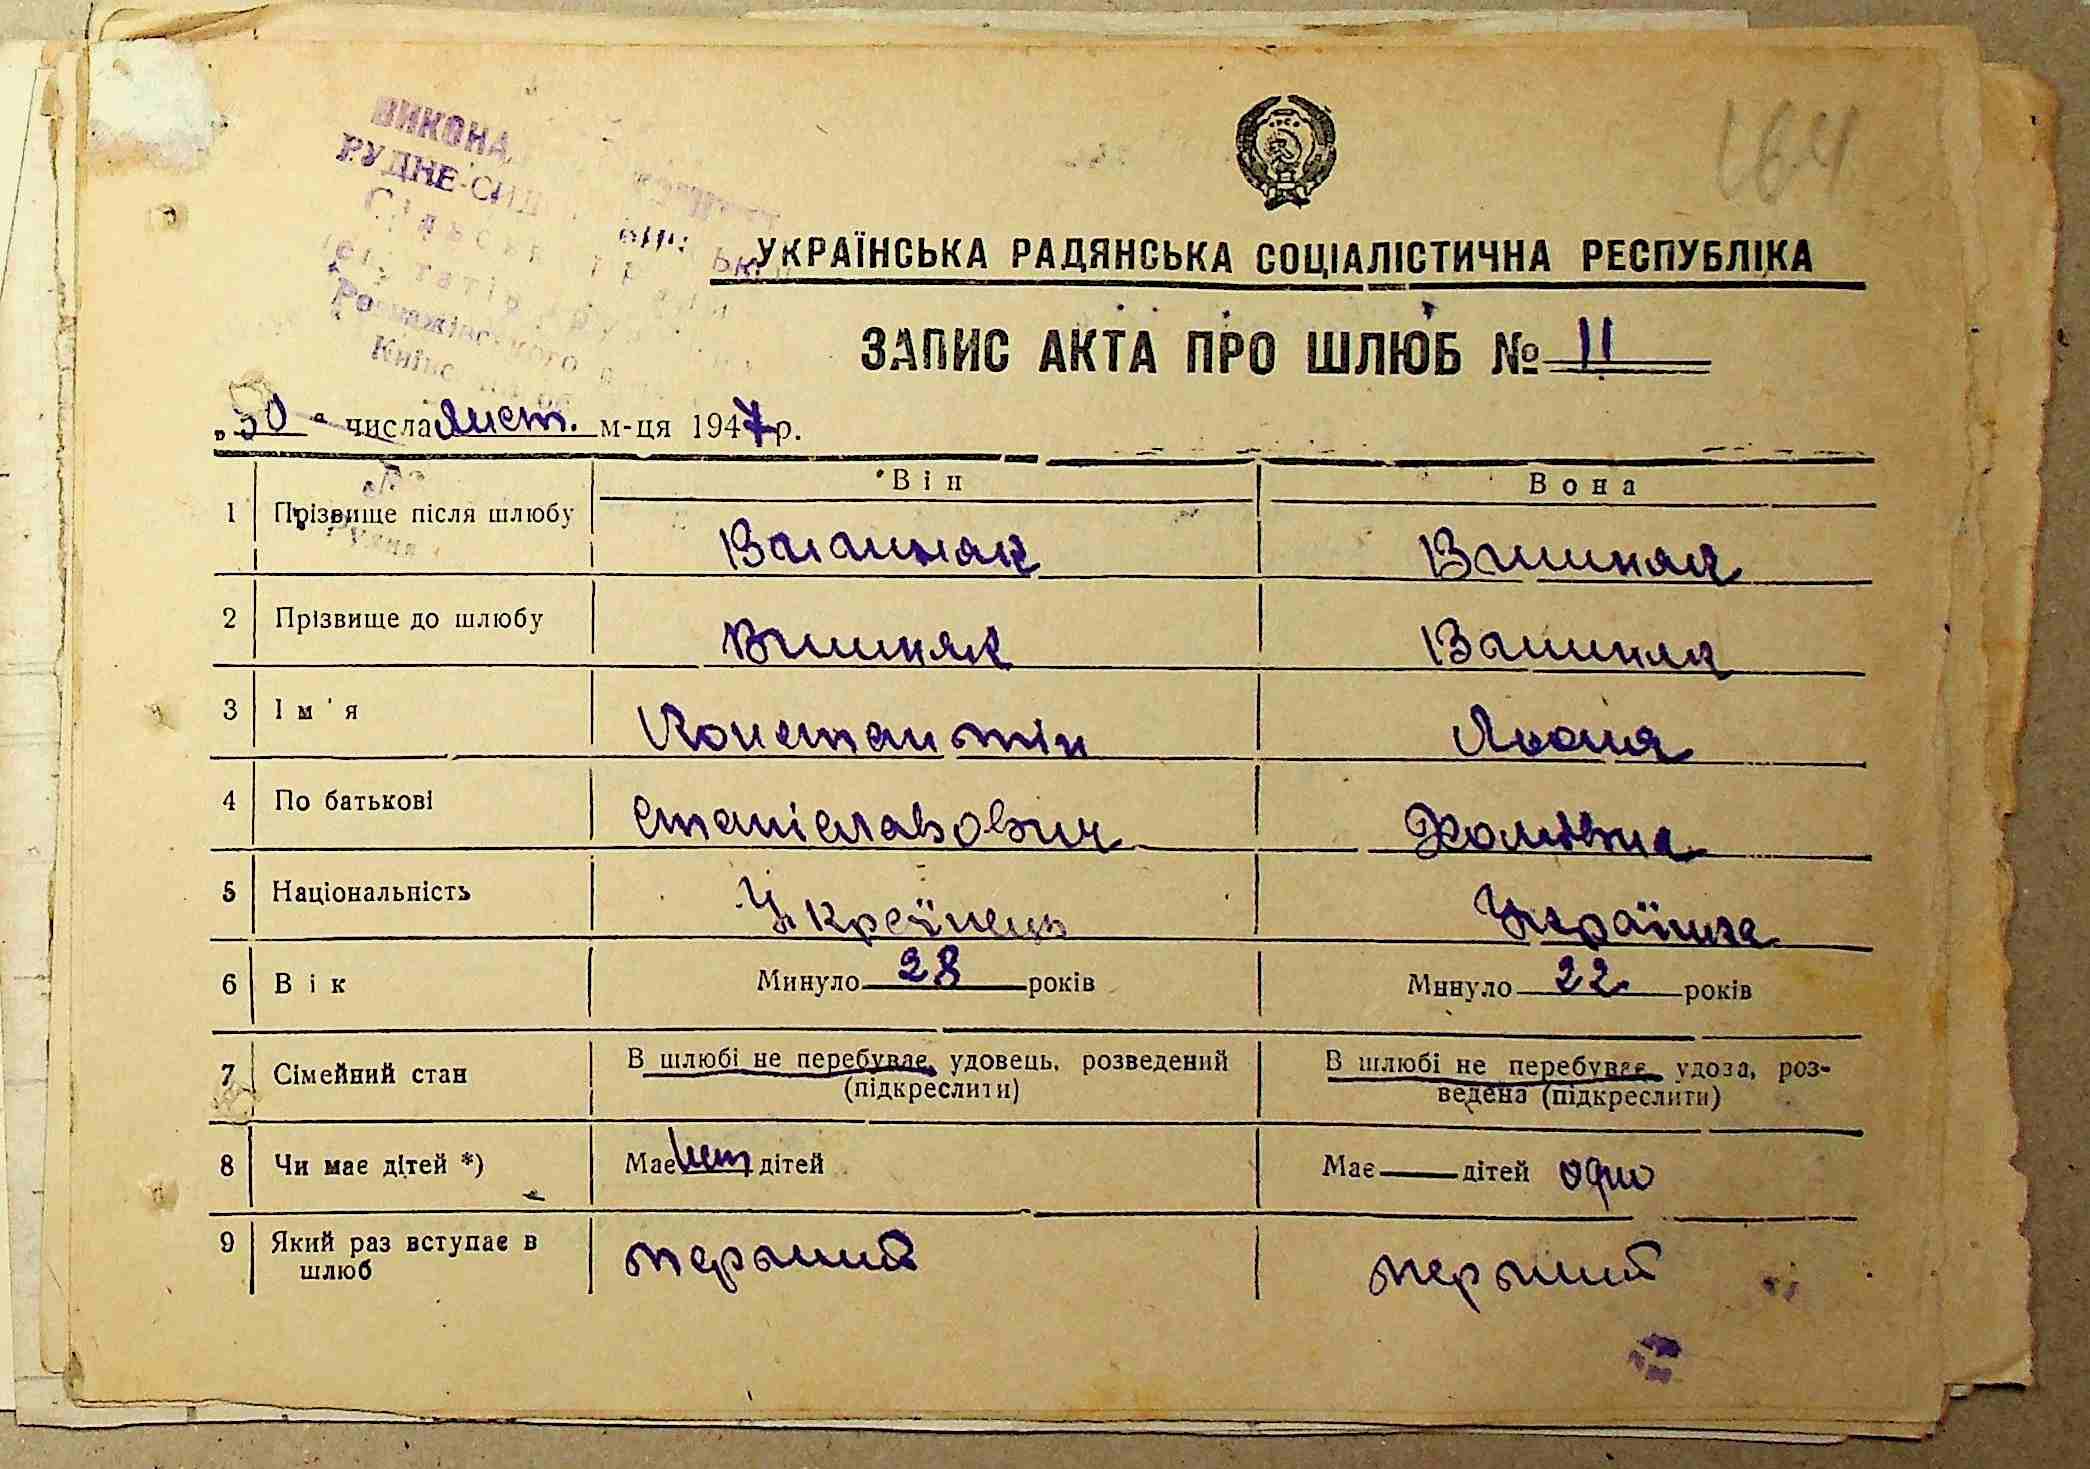 164
ВИКОНА
РУДНЕ-СИД
УКРАЇНСЬКА РАДЯНСЬКА СОЦІАЛІСТИЧНА РЕСПУБЛІКА
ЗАПИС АКТА ПРО ШЛЮБ № 11
„30“ числа лист. м-ця 1947 р.
Він Вона
1 Прізвище після шлюбу Вишняк Вишняк
2 Прізвище до шлюбу Вишняк Вишняк
3 Ім'я Константін
4 По батькові Станіславович
5 Національність Українець Українка
6 Вік Минуло 28 років Минуло 22 років
7 Сімейний стан В шлюбі не перебуває, удовець, розведений (підкреслити) В шлюбі не перебуває, удова, розведена (підкреслити)
8 Чи має дітей *) Має нет дітей Має — дітей одно
9 Який раз вступає в шлюб перший перший